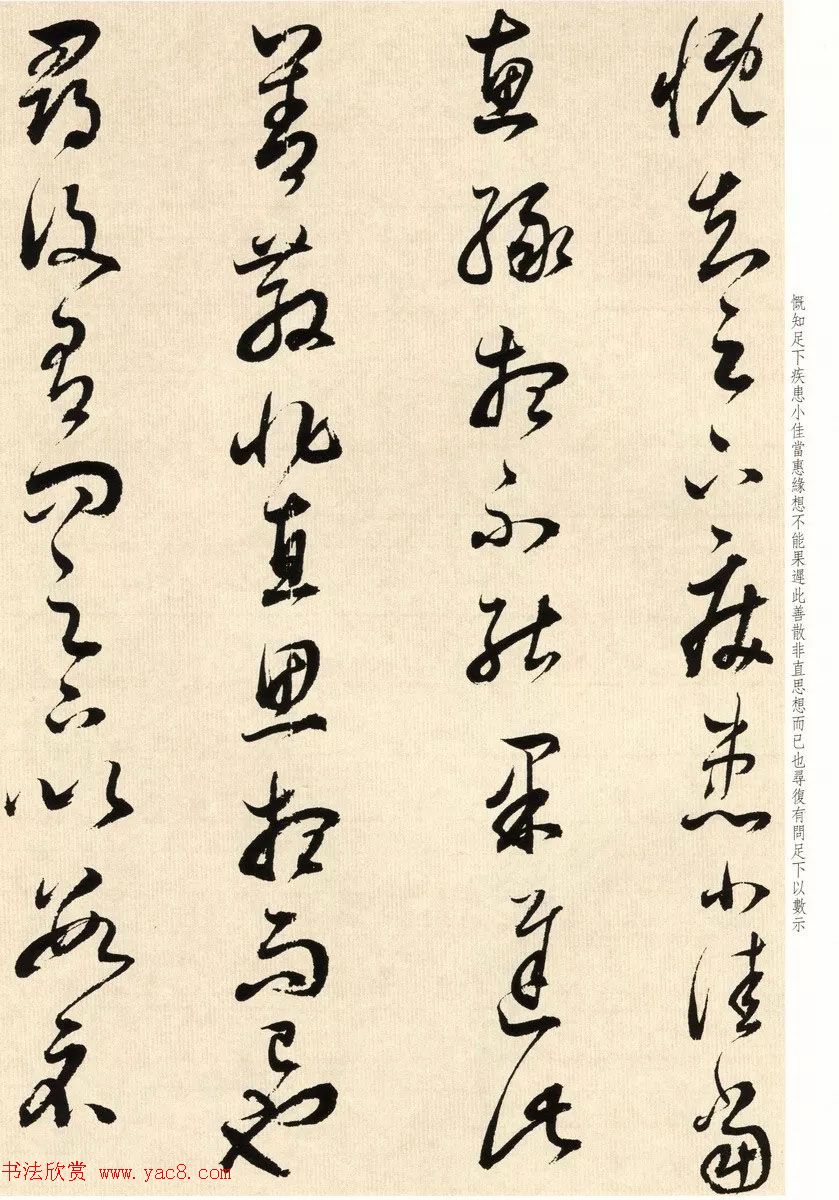 慨知足下疾患小佳當
惠緣想不能果遲此
善散非直思想而已也
尋復有問足下以數示
慨知足下疾患小佳當惠緣想不能果遲此善散非直思想而已也尋復有問足下以數示
书法欣赏 www.yac8.com